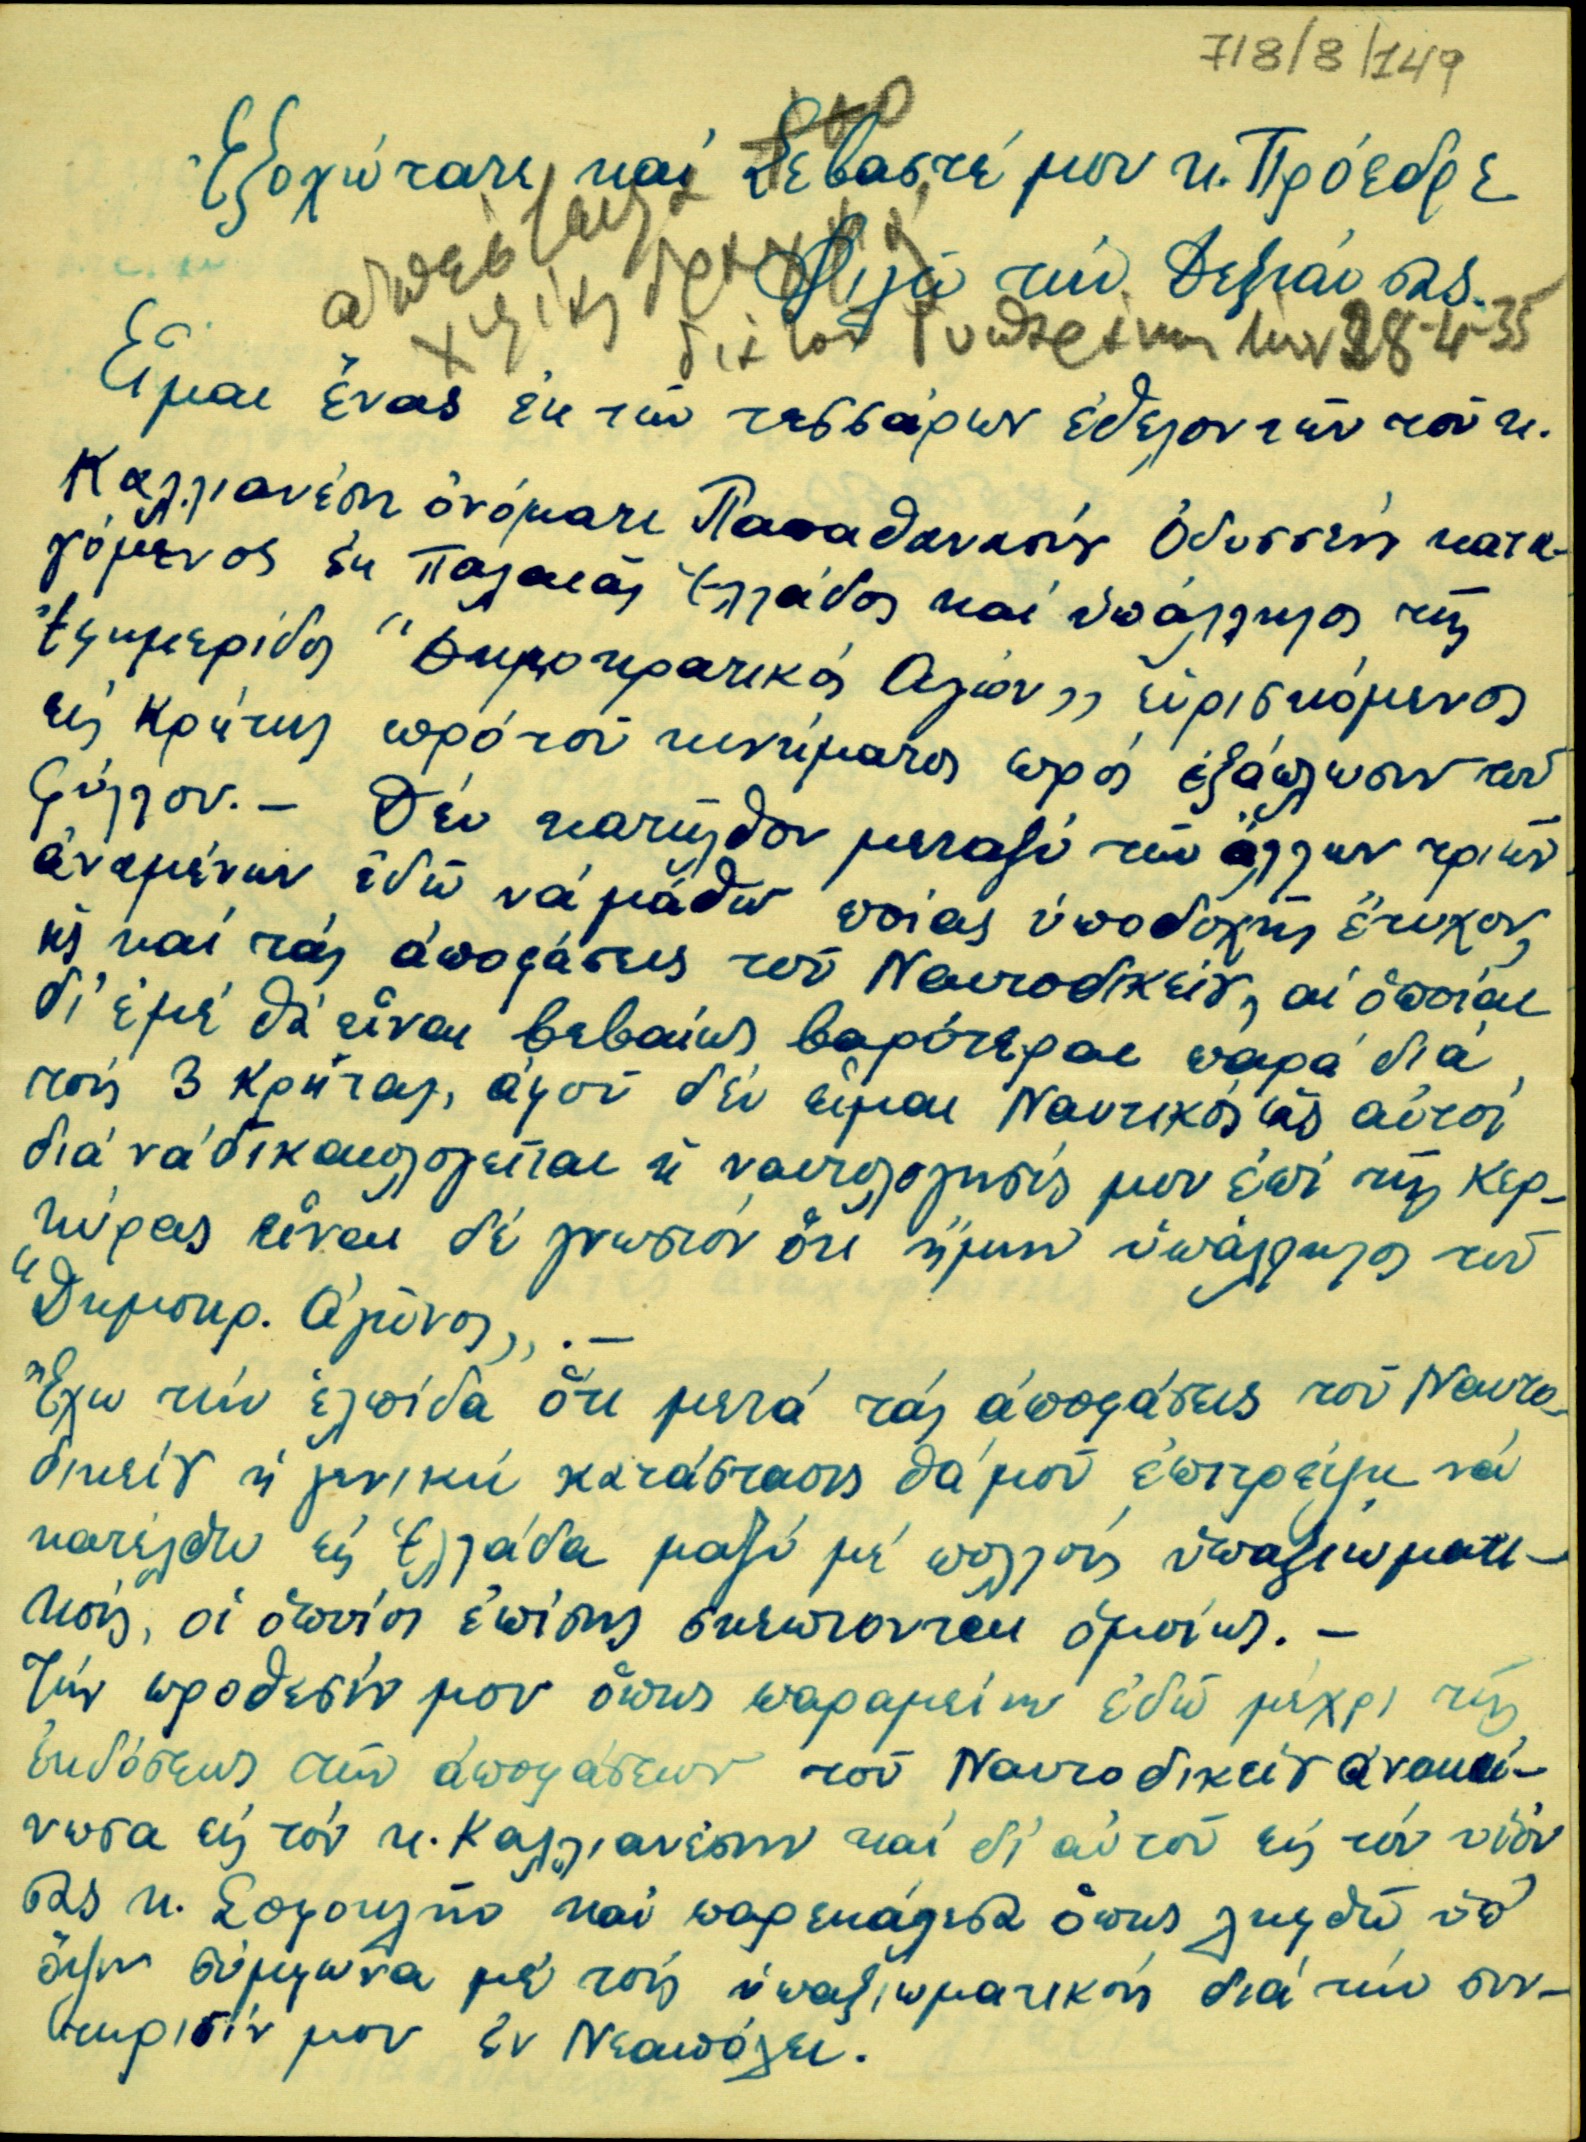 718/8/149
Ἐξοχώτατε καί Σεβαστέ μου κ. Πρόεδρε
Φιλῶ τήν Δεξιάν σας.
28-4-35
Εἶμαι ἕνας ἐκ τῶν τεσσάρων ἐθελοντῶν τοῦ κ.
Καλλιανέση ὀνόματι Παπαθανασίου Ὀδυσσεύς κατα-
γόμενος ἐκ Παλαιᾶς Ἑλλάδος καί ὑπάλληλος τῆς
Ἐφημερίδος "Δημοκρατικός Ἀγών,, εὑρισκόμενος
εἰς Κρήτης πρό τοῦ κινήματος πρός ἐξάπλωσιν τοῦ
φύλλου. — Δέν κατῆλθον μεταξύ τῶν ἄλλων τριῶν
ἀναμένων ἐδῶ νά μάθω ποίας ὑποδοχῆς ἔτυχον,
ὡς καί τάς ἀποφάσεις τοῦ Ναυτοδικείου, αἱ ὁποῖαι
δι' ἐμέ θά εἶναι βεβαίως βαρύτεραι παρά διά
τούς 3 Κρῆτας, ἀφοῦ δέν εἶμαι Ναυτικός ὡς αὐτοί
διά νά δικαιολογεῖται ἡ ναυτολόγησίς μου ἐπί τῆς Κερ-
κύρας εἶναι δέ γνωστόν ὅτι ἤμην ὑπάλληλος τοῦ
"Δημοκρ. Ἀγῶνος,, . —
Ἔχω τήν ἐλπίδα ὅτι μετά τάς ἀποφάσεις τοῦ Ναυτο-
δικείου ἡ γενική κατάστασις θά μοῦ ἐπιτρέψη νά
κατέλθω εἰς Ἑλλάδα μαζύ μέ πολλούς ὑπαξιωματι-
κούς, οἱ ὁποῖοι ἐπίσης σκέπτονται ὁμοίως. —
Τήν πρόθεσίν μου ὅπως παραμείνω ἐδῶ μέχρι τῆς
ἐκδόσεως τῶν ἀποφάσεων τοῦ Ναυτοδικείου ἀνακοί-
νωσα εἰς τόν κ. Καλλιανέσην καί δι' αὐτοῦ εἰς τόν υἱόν
σας κ. Σοφοκλῆν καί παρεκάλεσα ὅπως ληφθῶ ὑπ'
ὄψιν σύμφωνα μέ τούς ὑπαξιωματικούς διά τήν συν-
τήρισίν μου ἐν Νεαπόλει.